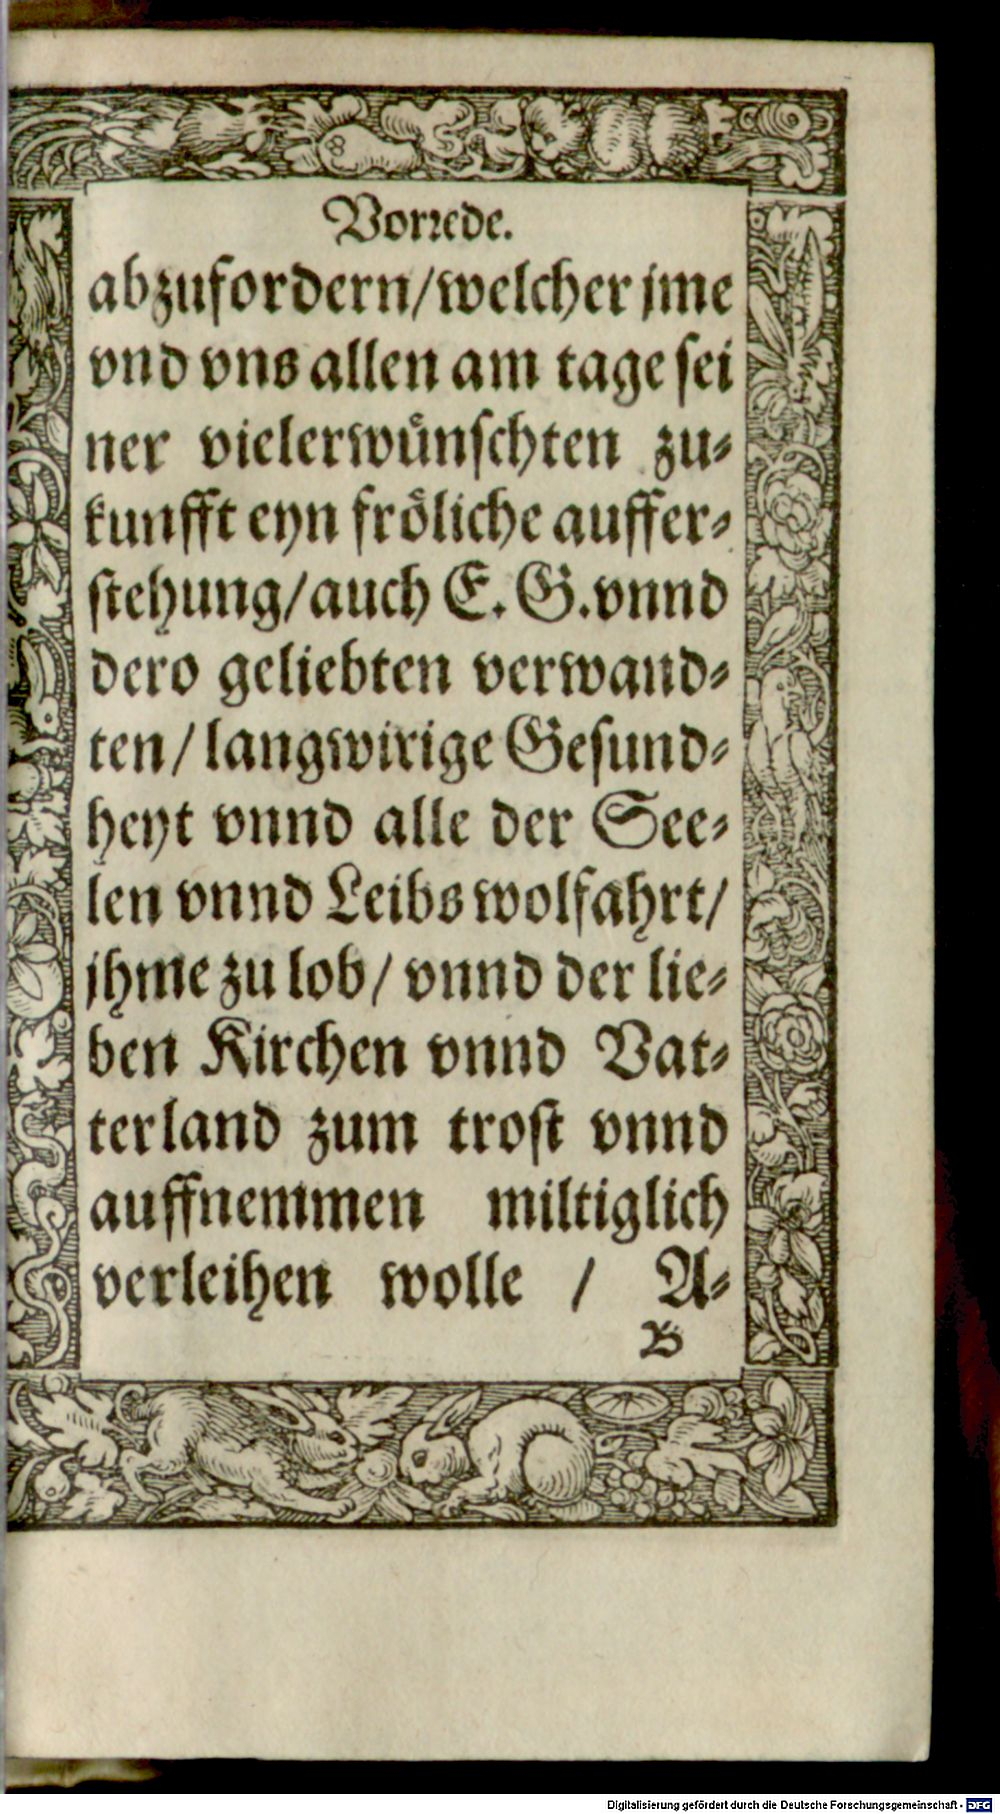 Vorꝛede.
abzufordern/welcher jme
vnd vns allen am tage sei
ner vielerwůnschten zu⸗
kunfft eyn frôliche auffer⸗
stehung/auch E. G. vnnd
dero geliebten verwand⸗
ten/ langwirige Gesund⸗
heyt vnnd alle der See⸗
len vnnd Leibs wolfahrt/
jhme zu lob/ vnnd der lie⸗
ben Kirchen vnnd Vat⸗
terland zum trost vnnd
auffnemmen miltiglich
verleihen wolle / A⸗
B
Digitalisierung gefördert durch die Deutsche Forschungsgemeinschaft - DFG